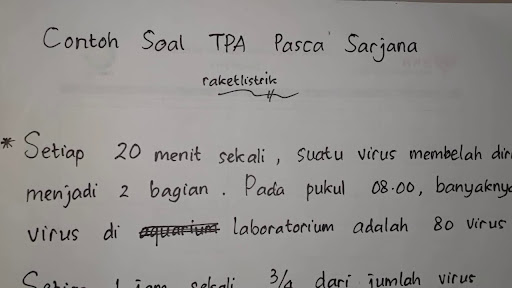 Contoh Soal TPA Pasca Sarjana
raketlistrik
* Setiap 20 menit sekali, suatu virus membelah diri
menjadi 2 bagian. Pada pukul 08.00, banyaknya
virus di aquarium laboratorium adalah 80 virus
Setiap 1 jam sekali 3/4 dari jumlah virus